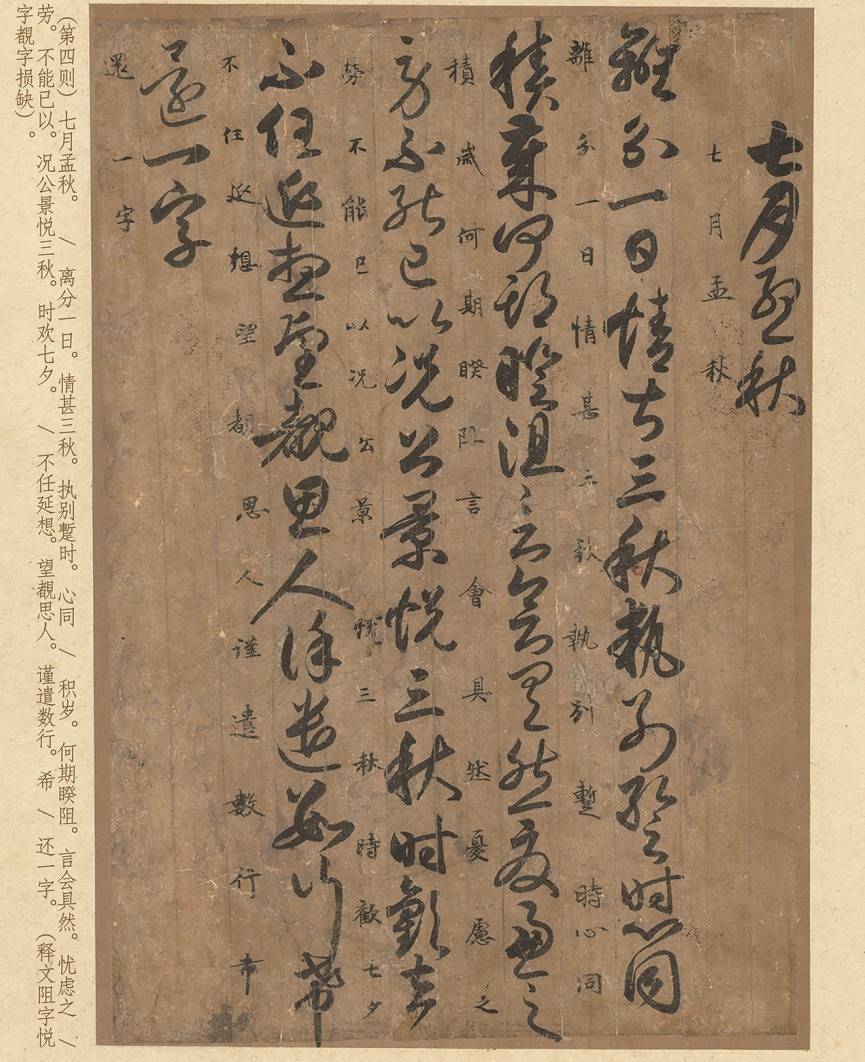 七月孟秋
七月孟秋
離分一日情甚三秋執別蹔時心同
離分一日情甚三秋執別蹔時心同
積歲何期睽阻言會具然憂慮之
積歲何期睽阻言會具然憂慮之
勞不能已以況公景悅三秋時歡七夕
勞不能已以況公景悅三秋時歡七夕
不任延想望覩思人謹遣數行希
不任延想望覩思人謹遣數行希
還一字
還一字
（第四则）七月孟秋。 / 离分一日。情甚三秋。执别蹔时。心同 / 积岁。何期睽阻。言会具然。忧虑之 /
劳。不能已以。况公景悦三秋。时欢七夕。 / 不任延想。望覩思人。谨遣数行。希 / 还一字。（释文阻字悦
字覩字损缺）。